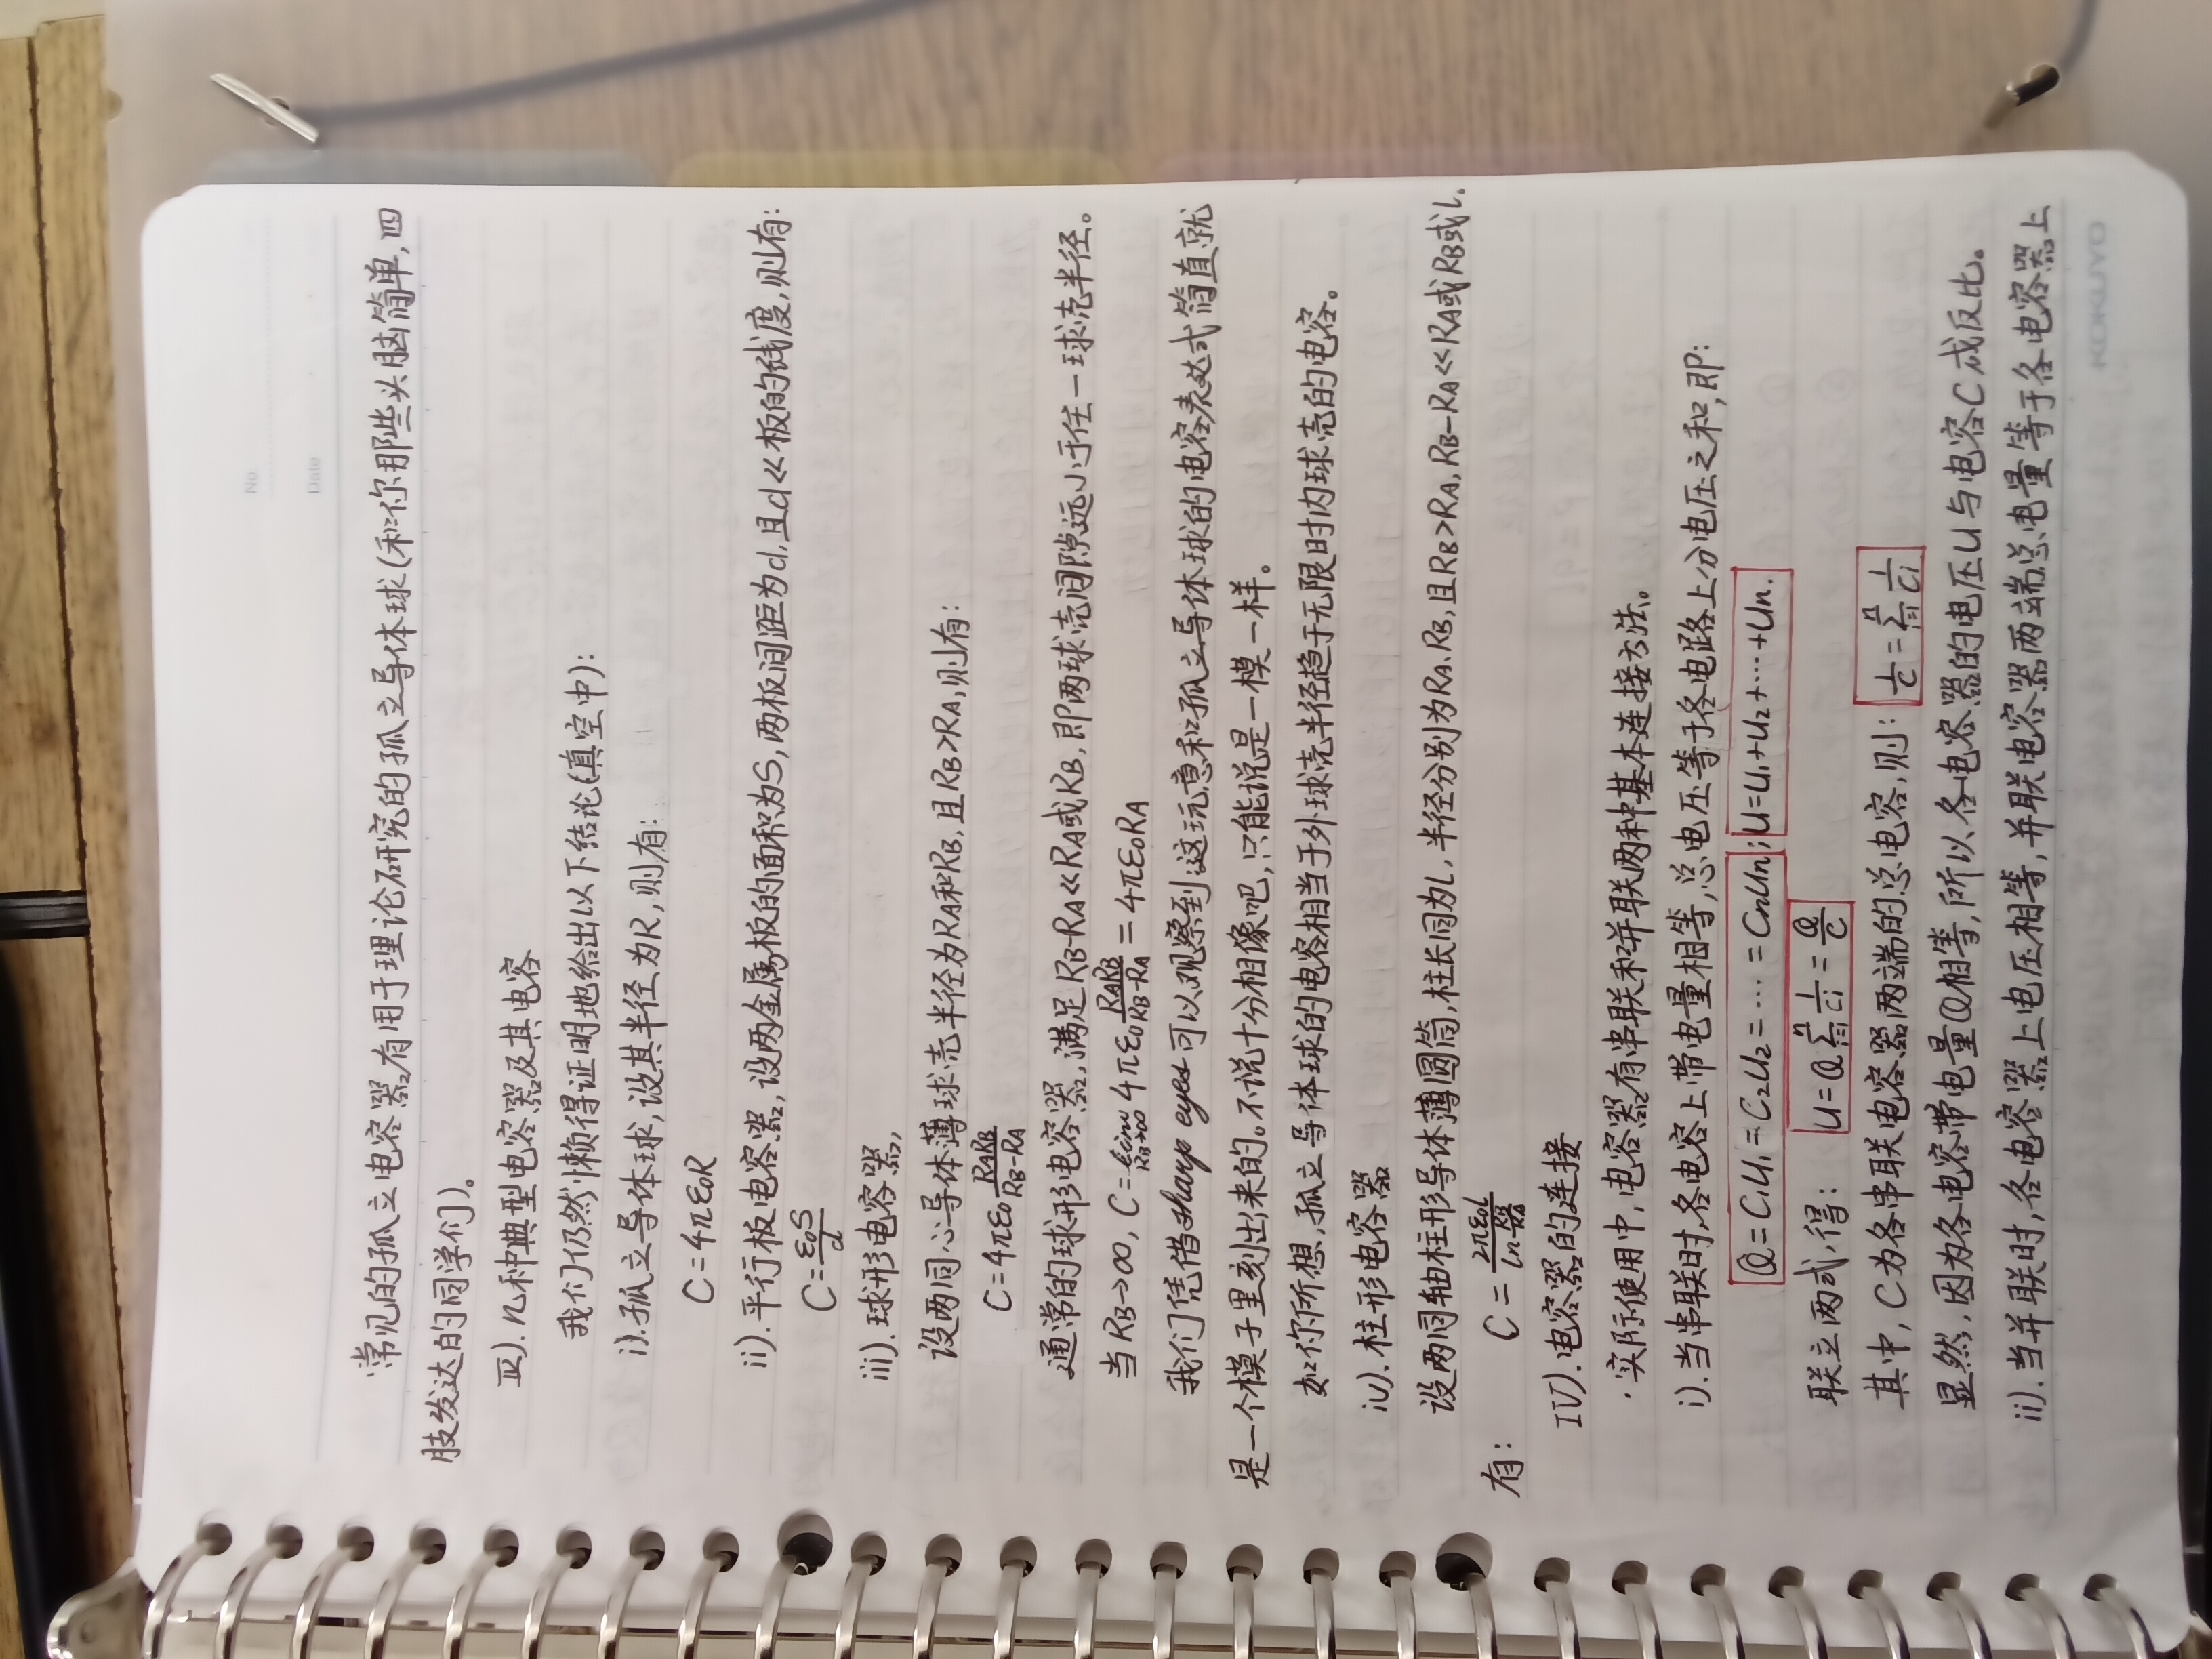 No
Date
常见的孤立电容器有用于理论研究的孤立导体球(和你那些头脑简单,四
肢发达的同学们)。
III).几种典型电容器及其电容
我们仍然懒得证明地给出以下结论(真空中):
i).孤立导体球,设其半径为R,则有:
C=4πε₀R
ii).平行板电容器,设两金属板的面积为S,两板间距为d,且d≪板的线度,则有:
C=ε₀S/d
iii).球形电容器,
设两同心导体薄球壳半径为RA和RB,且RB>RA,则有:
C=4πε₀ RARB/(RB-RA)
通常的球形电容器,满足RB-RA≪RA或RB,即两球壳间隙远小于任一球壳半径。
当RB→∞, C=lim RB→∞ 4πε₀ RARB/(RB-RA) = 4πε₀RA
我们凭借sharp eyes可以观察到这玩意和孤立导体球的电容表达式简直就
是一个模子里刻出来的。不说十分相像吧,只能说是一模一样。
如你所想,孤立导体球的电容相当于外球壳半径趋于无限时内球壳的电容。
iv).柱形电容器
设两同轴柱形导体薄圆筒,柱长同为L,半径分别为RA、RB,且RB>RA,RB-RA≪RA或RB或L.
有: C = 2πε₀l/ln(RB/RA)
IV).电容器的连接
·实际使用中,电容器有串联和并联两种基本连接方法。
i).当串联时,各电容上带电量相等,总电压等于各电路上分电压之和,即:
Q=C₁U₁=C₂U₂=…=CnUn;U=U₁+U₂+…+Un.
联立两式,得: U=Q∑(i=1→n) 1/Ci = Q/C
其中,C为各串联电容器两端的总电容,则: 1/C=∑(i=1→n) 1/Ci
显然,因为各电容带电量Q相等,所以各电容器的电压U与电容C成反比。
ii).当并联时,各电容器上电压相等,并联电容器两端总电量等于各电容器上
KOKUYO